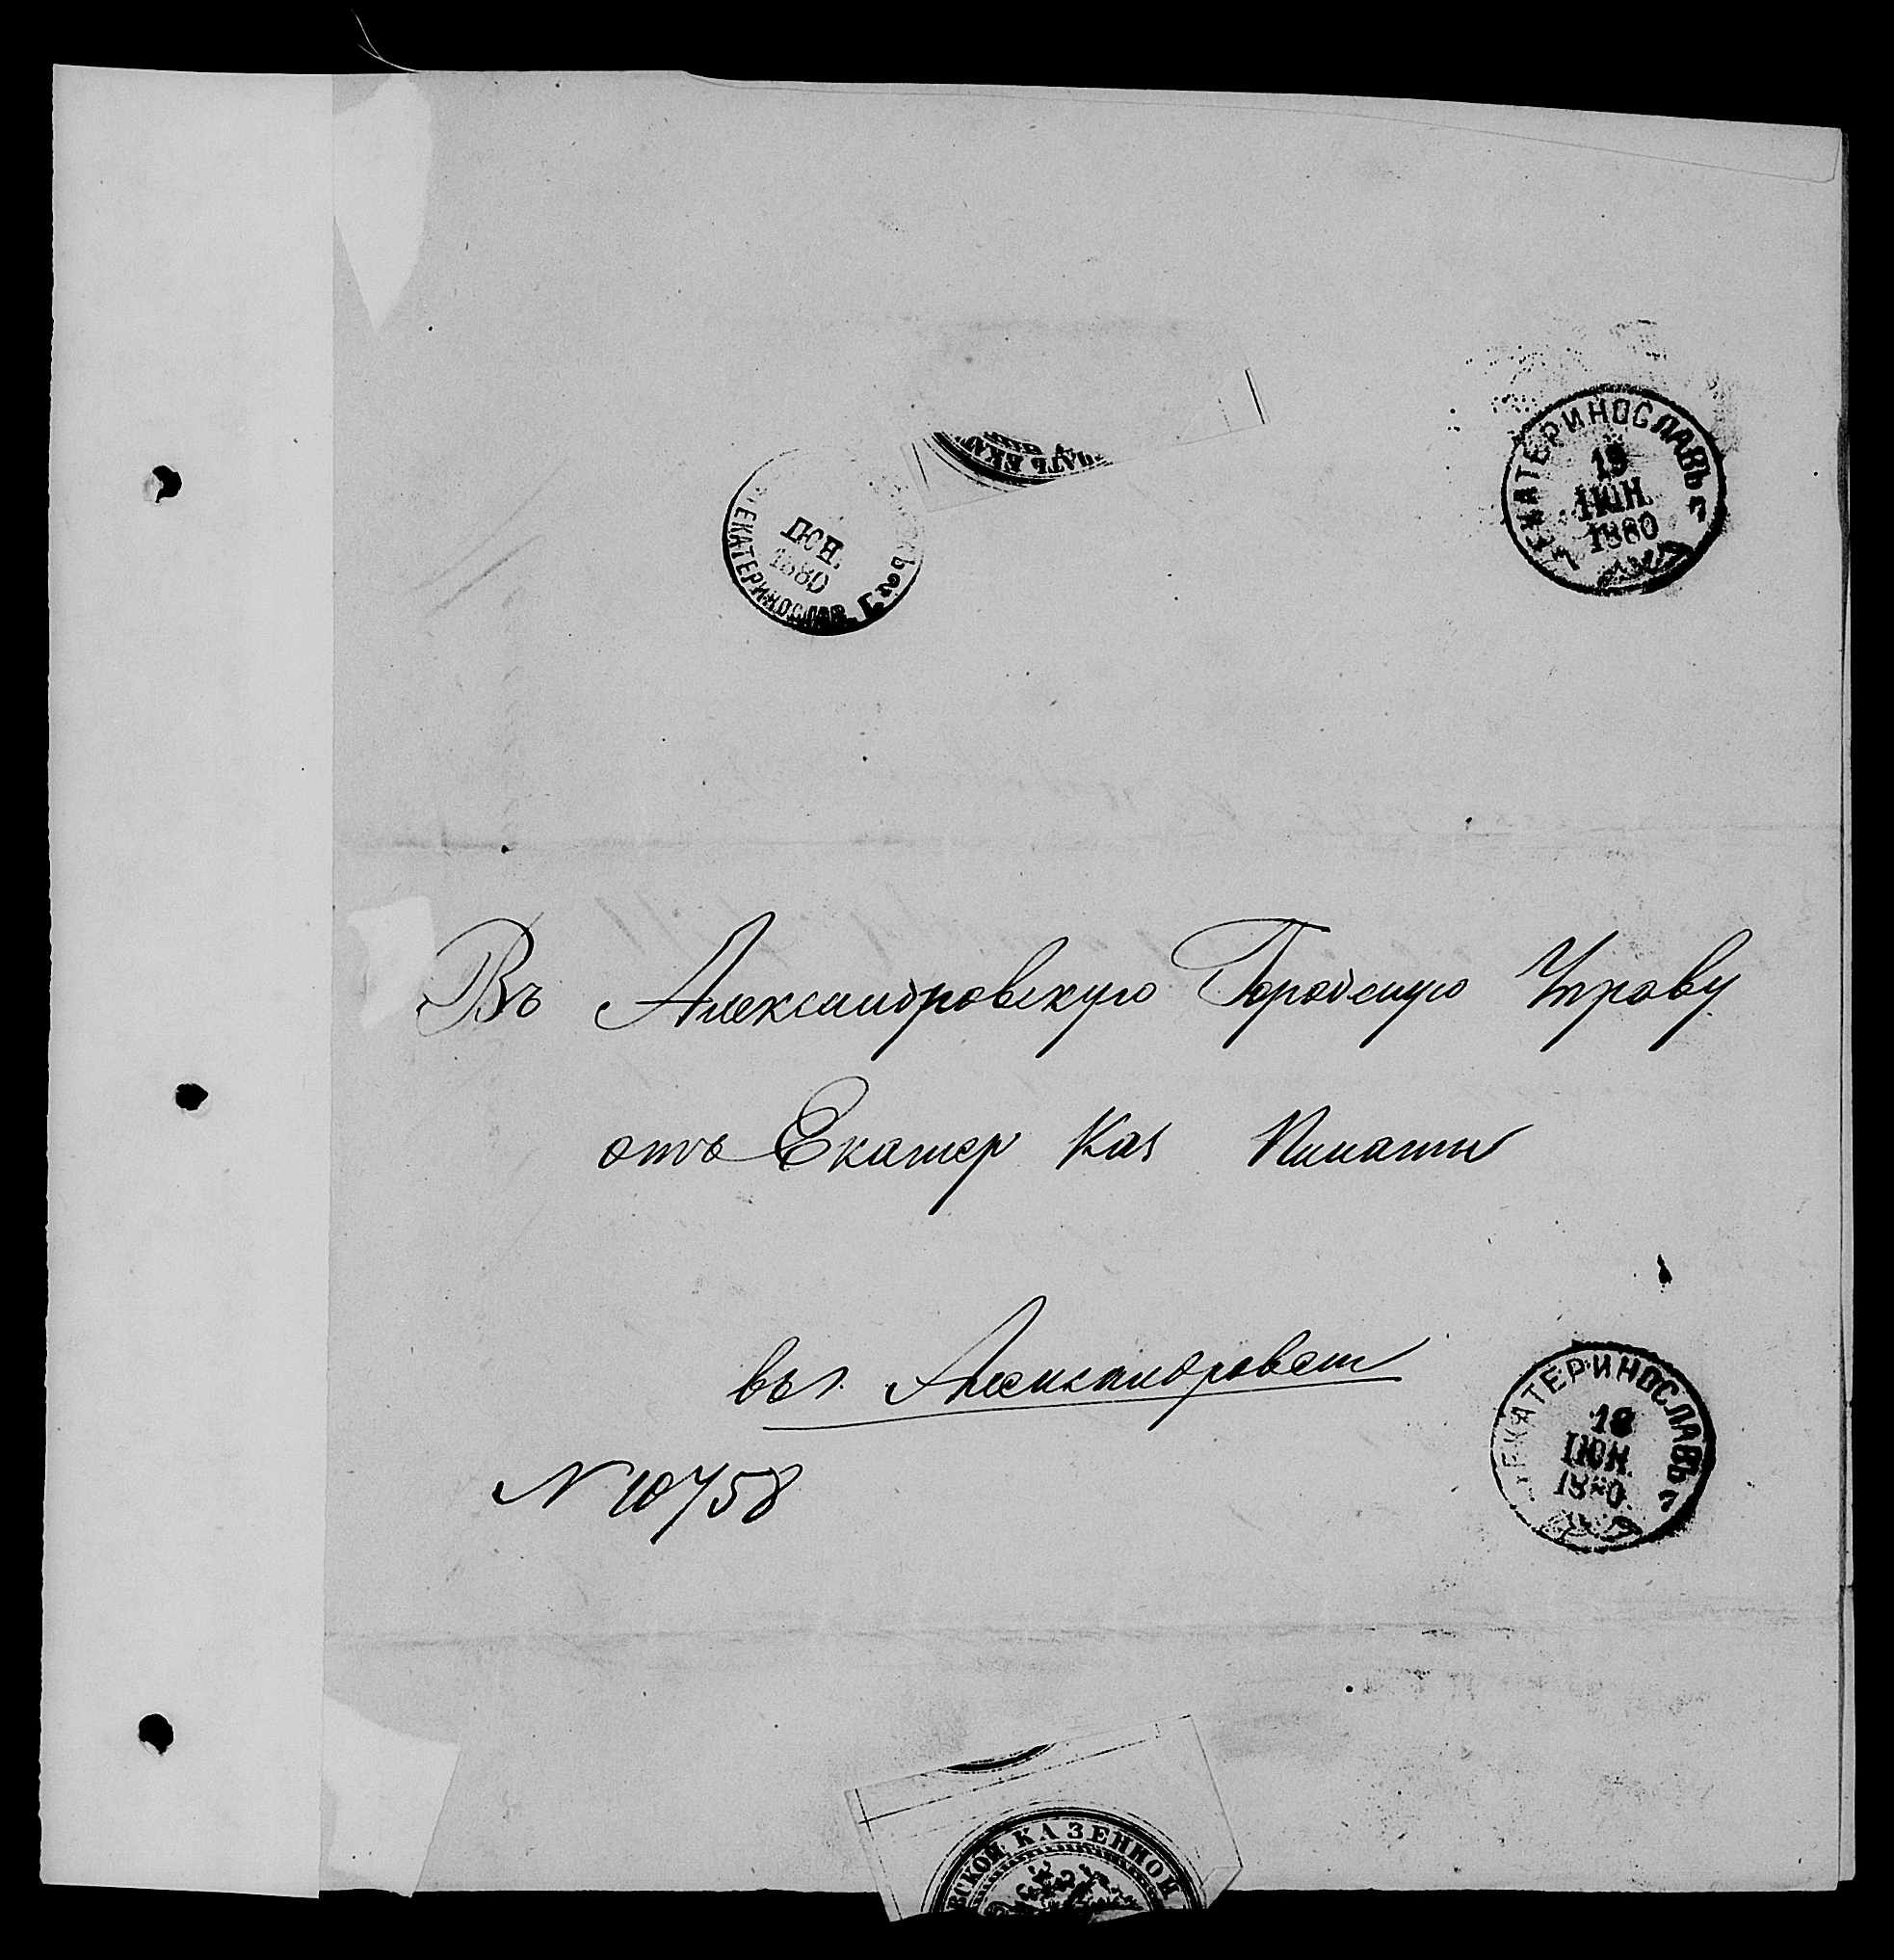 ПЕЧАТЬ ЕКАТ
ЕКАТЕРИНОСЛАВЪ 7
19
ІЮН.
1880
ІЮН.
1880
ЕКАТЕРИНОСЛАВ. Г.
Въ Александровскую Городскую Управу
отъ Екатер Каз Палаты
въ г. Александровск
N 10758
ЕКАТЕРИНОСЛАВЪ 7
18
ІЮН.
1880
ВСКОЙ КАЗЕННОЙ